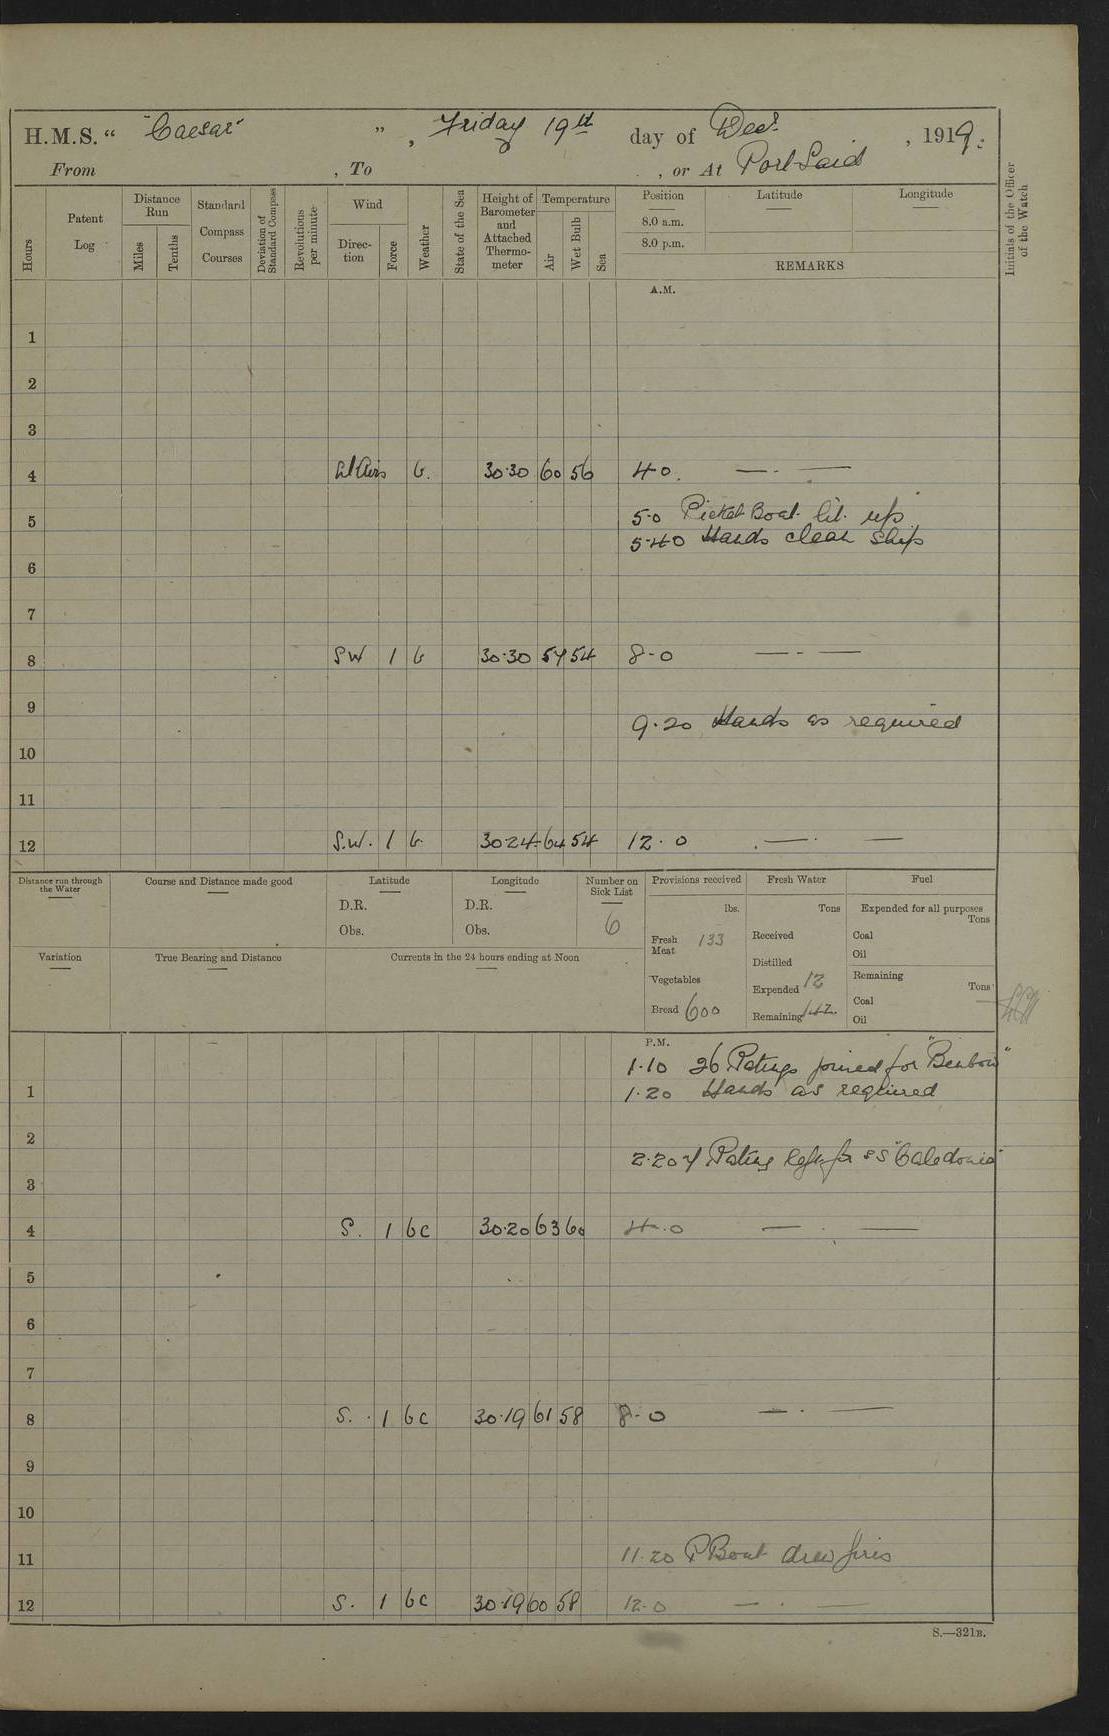 H.M.S. “ "Caesar" ” , Friday 19th day of Decr. , 1919.
From , To , or At Port Said
Hours
Patent Log
Distance Run
Miles
Tenths
Standard Compass Courses
Deviation of Standard Compass
Revolutions per minute
Wind
Direction
Force
Weather
State of the Sea
Height of Barometer and Attached Thermometer
Temperature
Air
Wet Bulb
Sea
Position
8.0 a.m.
8.0 p.m.
Latitude
Longitude
REMARKS
Initials of the Officer of the Watch
A.M.
1
2
3
4 Lt Airs b. 30·30 60 56 4·0. — · —
5 5·0 Picket Boat lit up
5·40 Hands clean ship
6
7
8 SW 1 b 30·30 57 54 8-0 — - —
9
9·20 Hands as required
10
11
12 S.W. 1 b 30·24 64 54 12·0 — · —
Distance run through the Water
Course and Distance made good
Latitude
D.R.
Obs.
Longitude
D.R.
Obs.
Number on Sick List
6
Provisions received
lbs.
Fresh Meat 133
Vegetables
Bread 600
Fresh Water
Tons
Received
Distilled
Expended 12
Remaining 142.
Fuel
Expended for all purposes
Tons
Coal
Oil
Remaining
Tons
Coal
Oil
Variation
True Bearing and Distance
Currents in the 24 hours ending at Noon
P.M.
1·10 26 Ratings joined for "Benbow"
1 1·20 Hands as required
2
2·20 7 Rating left for SS "Caledonia"
3
4 S. 1 bc 30·20 63 60 4·0 — · —
5
6
7
8 S. 1 bc 30·19 61 58 8-0 — · —
9
10
11 11·20 P Boat drew fires
12 S. 1 bc 30·19 60 58 12·0 — · —
S.—321B.